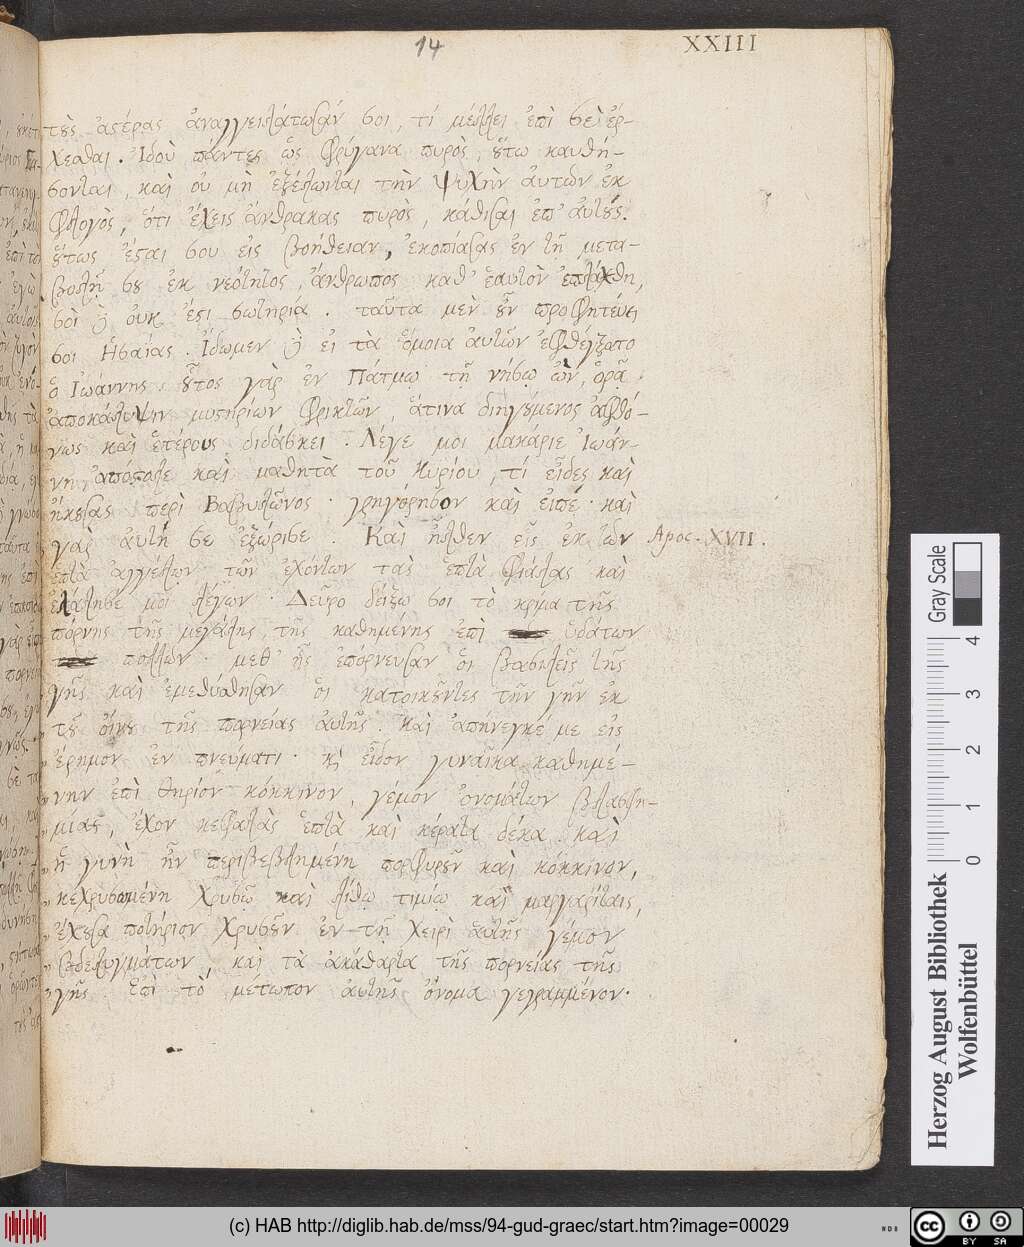 14
XXIII
τȣ̀ς ἀϛέρας ἀναγγειλάτωσάν σοι, τί μέλλει ἐπὶ σὲ ἐρ-
χεσθαι. Ἰδοὺ πάντες ὡς φρύγανα πυρὸς, ȣ̔́τω καυθή-
σονται, καὶ οὐ μὴ ἐξέλωνται τὴν ψυχὴν ἀυτῶν ἐκ
φλογὸς, ὅτι ἔχεις ἄνθρακας πυρὸς, κάθισαι ἐπ' ἀυτȣ́ς.
ȣ̔́τως ἔσαι σου εἰς βοήθειαν, ἐκοπίασας ἐν τῆ μετα-
βολῆ σȣ ἐκ νεότητος, ἄνθρωπος καθ' ἑαυτὸν ἐπλάχθη,
σοὶ δὲ ὀυκ ἔϛι σωτηρία. ταῦτα μὲν ȣ̓͂ν προφητεύει
σοι Ἡσαΐας. Ἴδωμεν δὲ εἰ τὰ ὅμοια ἀυτῶν ἐφθέγξατο
ὁ Ἰωάννης. ȣ̔͂τος γὰρ ἐν Πάτμῳ τῆ νήσῳ ὢν, ὁρᾷ
ἀποκάλυψιν μυϛηρίων φρικτῶν, ἅτινα διηγȣ́μενος ἀφθό-
νως καὶ ἑτέρους διδάσκει. Λέγε μοι μακάριε Ἰωάν-
νη, ἀπόϛολε καὶ μαθητὰ τοῦ Κυρίου, τί εἶδες καὶ
ἤκȣσας περὶ Βαβυλῶνος. γρηγόρησον καὶ εἰπέ. καὶ
γὰρ ἀυτή σε ἐξώρισε. Καὶ ἦλθεν εἷς ἐκ τῶν
Apoc. XVII.
ἑπτὰ ἀγγέλων τῶν ἐχόντων τὰς ἑπτὰ φιάλας καὶ
ἐλάλησέ μοι λέγων. Δεῦρο δείξω σοι τὸ κρίμα τῆς
πόρνης τῆς μεγάλης, τῆς καθημένης ἐπὶ ὑδάτων
πολλῶν. μεθ' ἧς ἐπόρνευσαν ὁι βασιλεῖς τῆς
γῆς καὶ ἐμεθύσθησαν ὁι κατοικȣ͂ντες τὴν γῆν ἐκ
τȣ͂ ὄινȣ τῆς πορνείας ἀυτῆς. καὶ ἀπήνεγκέ με εἰς
" ἔρημον ἐν πνεύματι. κỳ εἶδον γυναῖκα καθημέ-
" νην ἐπὶ θηρίον κόκκινον, γέμον ὀνομάτων βλασφη-
" μίας, ἔχον κεφαλὰς ἑπτὰ καὶ κέρατα δέκα. καὶ
" ἡ γυνὴ ἦν περιβεβλημένη πορφυρȣ͂ν καὶ κόκκινον,
" κεχρυσωμένη χρυσῷ καὶ λίθῳ τιμίῳ καὶ μαργαρίταις,
" ἔχȣσα ποτήριον χρυσȣ͂ν ἐν τῆ χειρὶ ἀυτῆς γέμον
" βδελυγμάτων, καὶ τὰ ἀκάθαρτα τῆς πορνείας τῆς
" γῆς. Ἐπὶ τὸ μέτωπον ἀυτῆς ὄνομα γεγραμμένον.
Herzog August Bibliothek
Wolfenbüttel
Gray Scale
0 1 2 3 4
(c) HAB http://diglib.hab.de/mss/94-gud-graec/start.htm?image=00029
WDB
cc BY SA